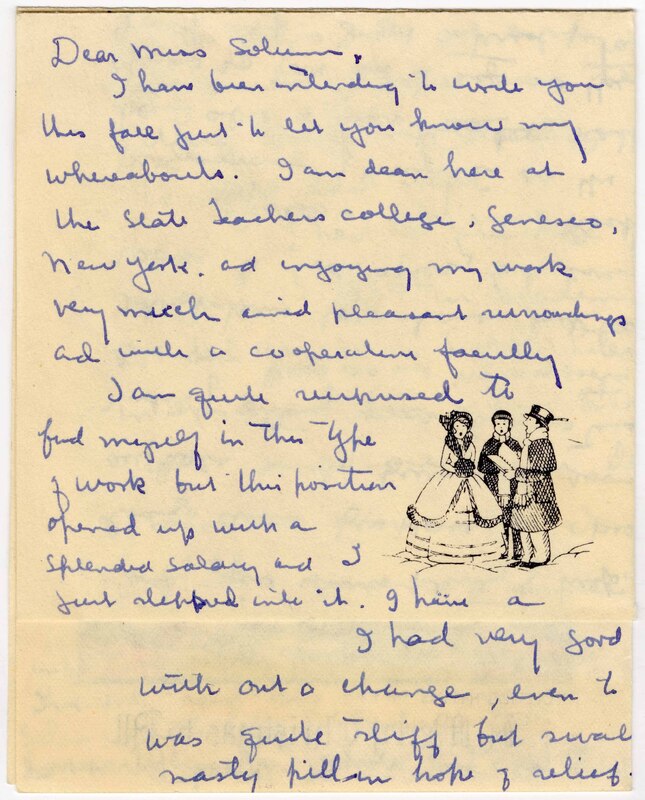 Dear Miss Solum,
I have been intending to write you
this fall just to let you know my
whereabouts. I am dean here at
the State Teachers college, Geneseo,
New York. ad enjoying my work
very much amid pleasant surroundings
ad with a cooperative faculty
I am quite surprised to
find myself in this type
of work but this position
opened up with a
splended salary and I
just stepped into it. I have a
I had very good
with out a change, even to
was quite stiff but swal
nasty pill in hope of relief.